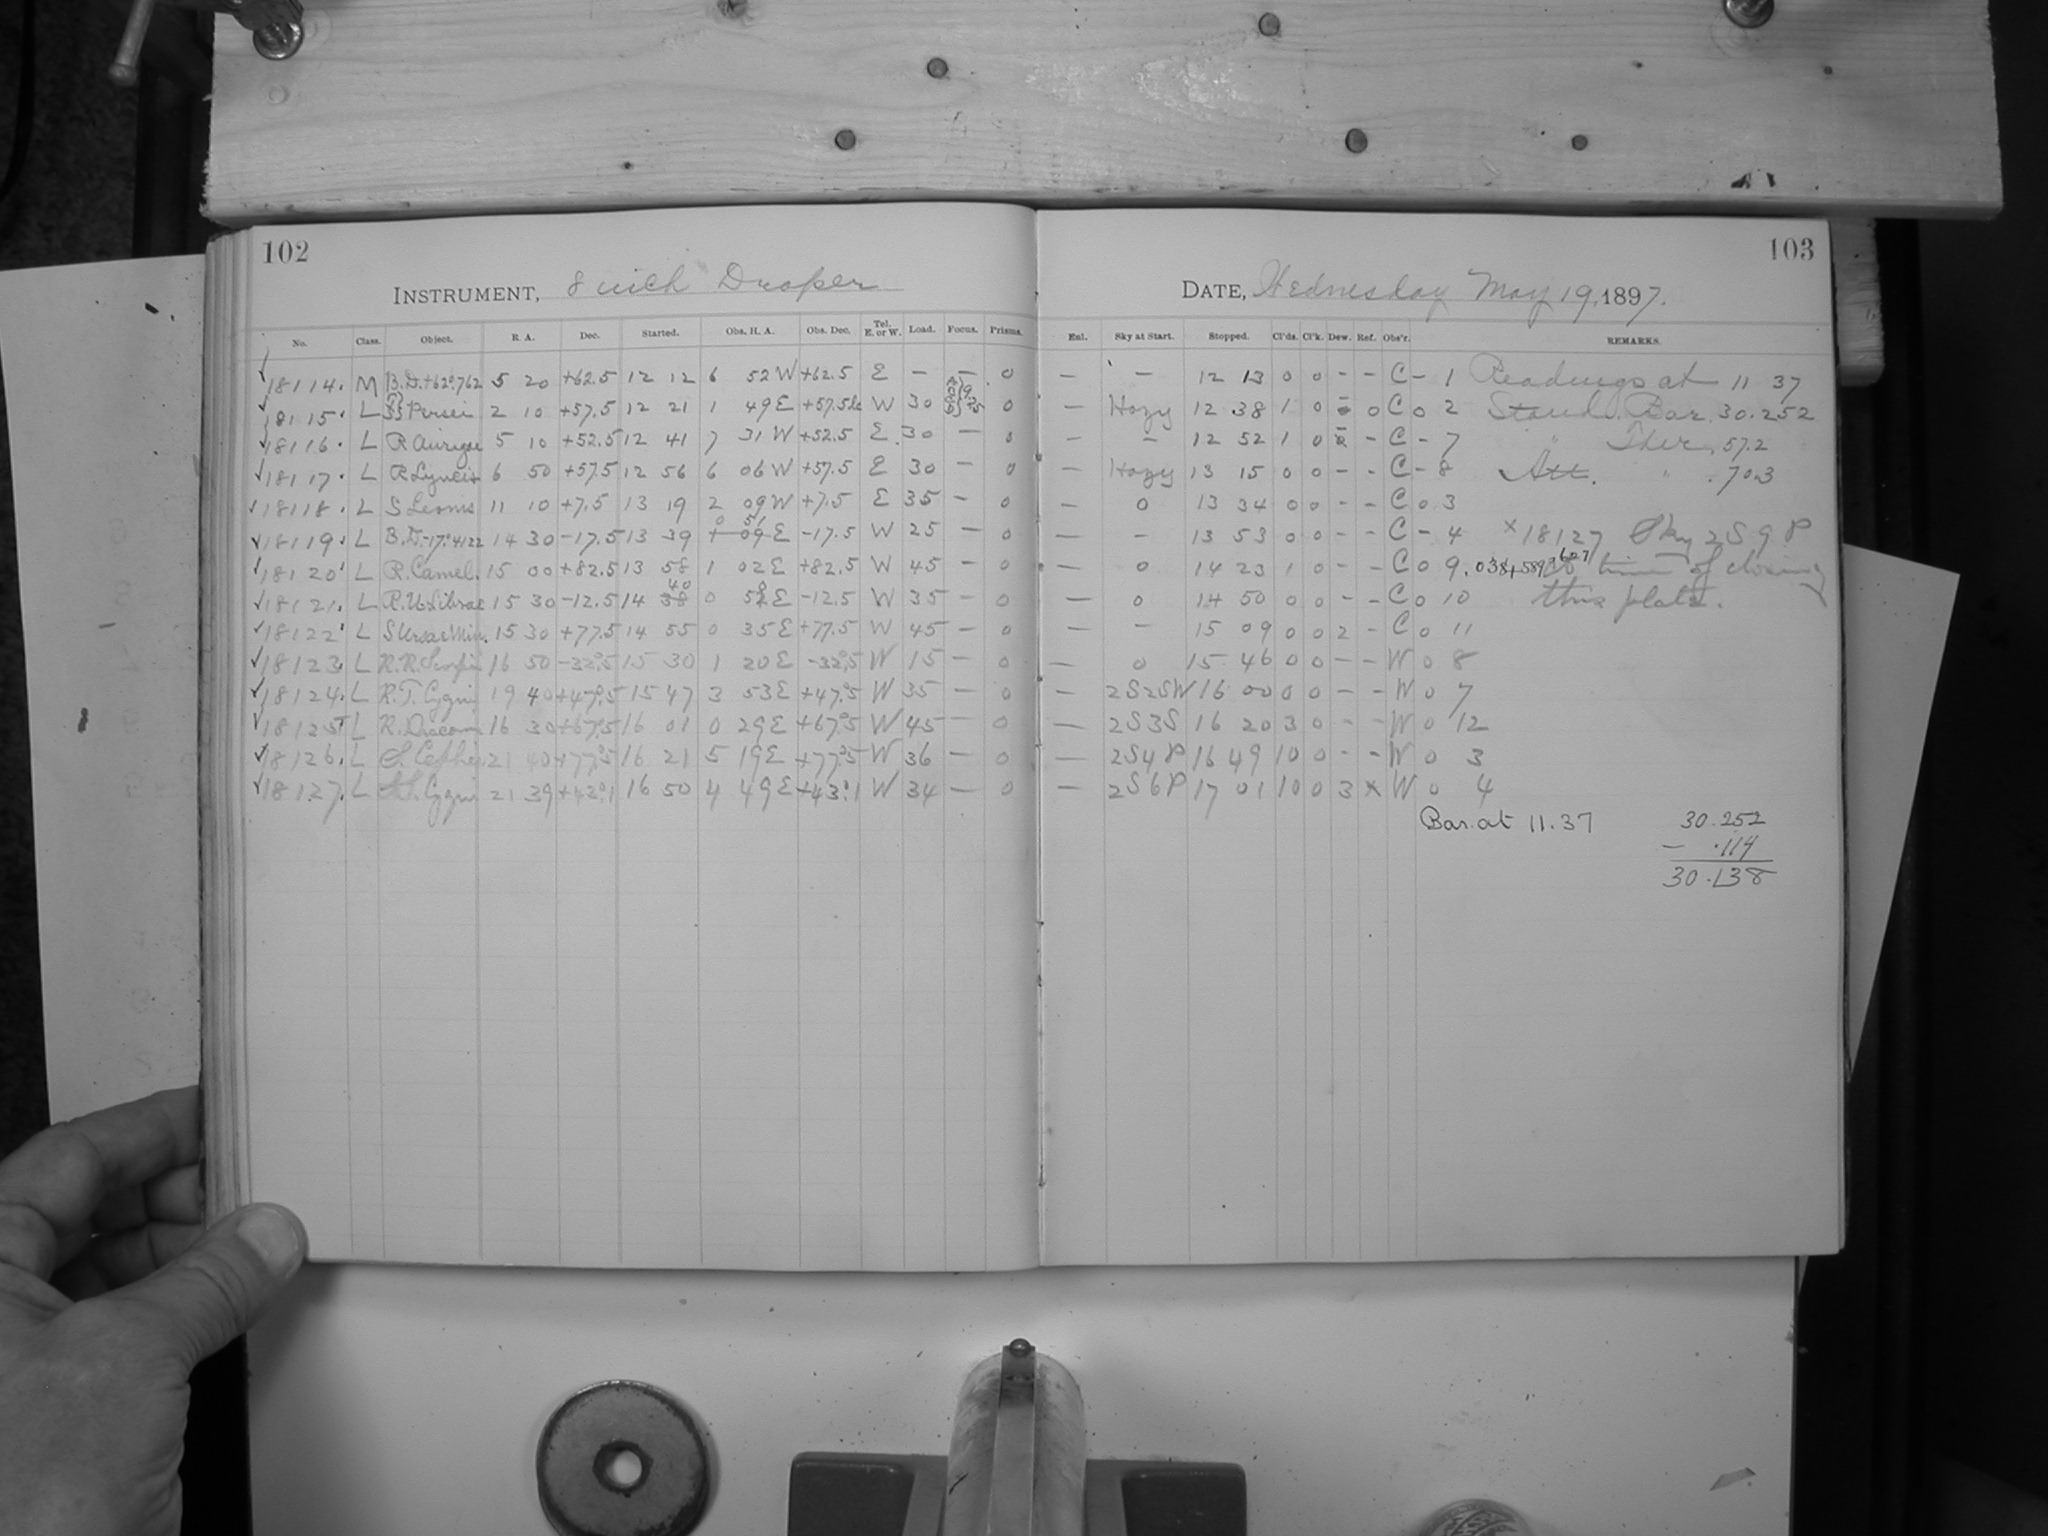 102
INSTRUMENT, 8 inch Draper
No. Class. Object. R. A. Dec. Started. Obs. H. A. Obs. Dec. Tel. E. or W. Load. Focus. Prisms.
18114. M B.D.+62°.762 5 20 +62.5 12 12 6 52 W +62.5 E — — 0
18115. L Persei 2 10 +57.5 12 21 1 49 E +57.5 W 30 0
18116. L R Aurigae 5 10 +52.5 12 41 7 31 W +52.5 E 30 — 0
18117. L R Lyncis 6 50 +57.5 12 56 6 06 W +57.5 E 30 — 0
18118. L S Leonis 11 10 +7.5 13 19 2 09 W +7.5 E 35 — 0
18119. L B.D.-17°.4122 14 30 -17.5 13 39 0 51 E -17.5 W 25 — 0
18120 L R. Camel. 15 00 +82.5 13 58 1 02 E +82.5 W 45 — 0
18121. L R.U. Librae 15 30 -12.5 14 40 0 E -12.5 W 35 — 0
18122 L S Ursae Min. 15 30 +77.5 14 55 0 35 E +77.5 W 45 — 0
18123. L R.R. Scorpii 16 50 -32°.5 15 30 1 20 E -32°.5 W 15 — 0
18124. L R.T. Cygni 19 40 +47°.5 15 47 3 53 E +47°.5 W 35 — 0
18125 L R. Draconis 16 30 +67°.5 16 01 0 29 E +67°.5 W 45 — 0
18126. L S. Cephei 21 40 +77°.5 16 21 5 19 E +77°.5 W 36 — 0
18127. L Cygni 21 39 +43°.1 16 50 4 49 E +43°.1 W 34 — 0
103
DATE, Wednesday May 19, 1897.
Enl. Sky at Start. Stopped. Cl'ds. Cl'k. Dew. Ref. Obs'r. REMARKS.
— — 12 13 0 0 - - C - 1 Readings at 11 37
— Hazy 12 38 1 0 0 C 0 2 Stand. Bar. 30.252
— — 12 52 1 0 - C - 7 " Ther. 57.2
— Hazy 13 15 0 0 - - C - 8 Att. " 70.3
— 0 13 34 0 0 - - C 0 3
— — 13 53 0 0 - - C - 4 × 18127 Sky 2 S 9 P
— 0 14 23 1 0 - - C 0 9. time of closing
— 0 14 50 0 0 - - C 0 10 this plate.
— — 15 09 0 0 2 - C 0 11
— 0 15 46 0 0 - - W 0 8
— 2S2SW 16 00 0 0 - - W 0 7
— 2S3S 16 20 3 0 - - W 0 12
— 2S4P 16 49 10 0 - - W 0 3
— 2S6P 17 01 10 0 3 × W 0 4
Bar. at 11.37 30.252
— .114
30.138